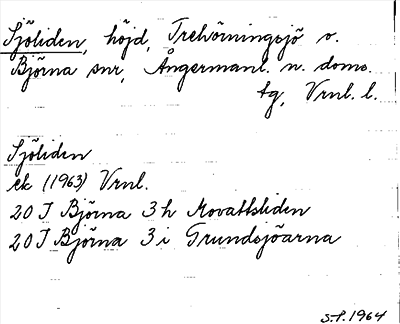 Sjöliden, höjd, Trehörningsjö o.
Björna snr, Ångermanl. n. doms.
tg, Vrnl. l.
Sjöliden
ek (1963) Vrnl.
20 J Björna 3 h Movattsliden
20 J Björna 3 i Grundsjöarna
S.F. 1964